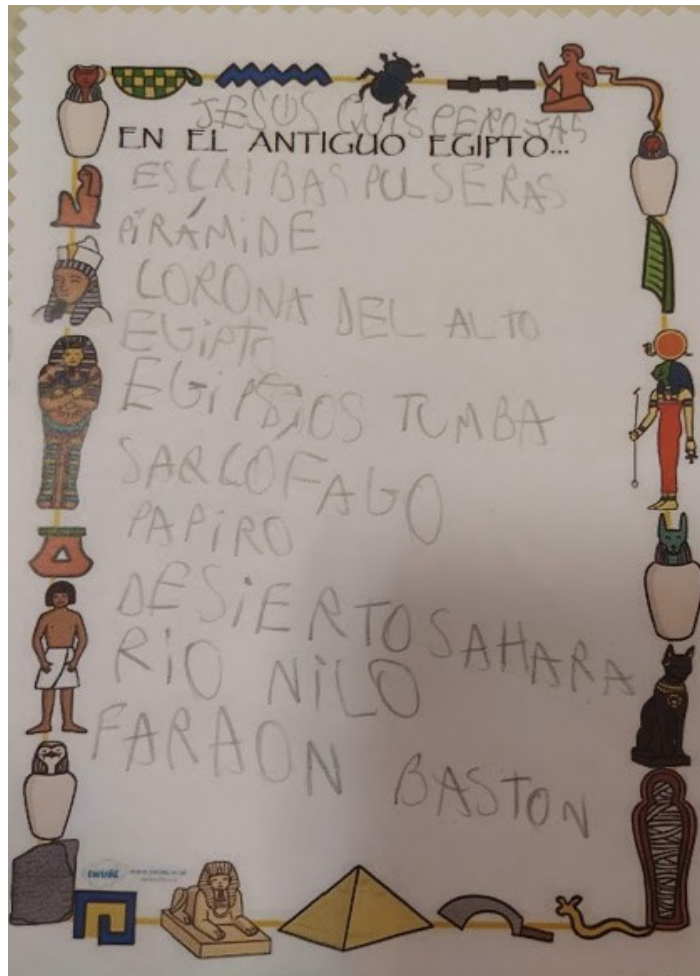 JESUS QUISPEROJAS
EN EL ANTIGUO EGIPTO...
ESCRIBAS PULSERAS
PIRÁMIDE
CORONA DEL ALTO
EGIPTO
TUMBA
SARCOFAGO
PAPIRO
DESIERTO SAHARA
RIO NILO
FARAON BASTON